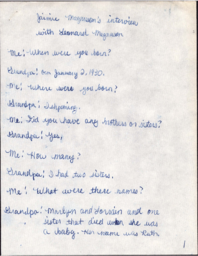 Jamie Magnuson's interview
with Leonard Magnuson
Me: When were you born?
Grandpa: On January 2, 1930.
Me: Where were you born?
Grandpa:
Me: Did you have any brothers or sisters?
Grandpa: Yes,
Me: How many?
Grandpa: I had two sisters.
Me: What were there names?
Grandpa: Marlyn and Lorrain and one
sister that died when she was
a baby. Her name was Ruth
1